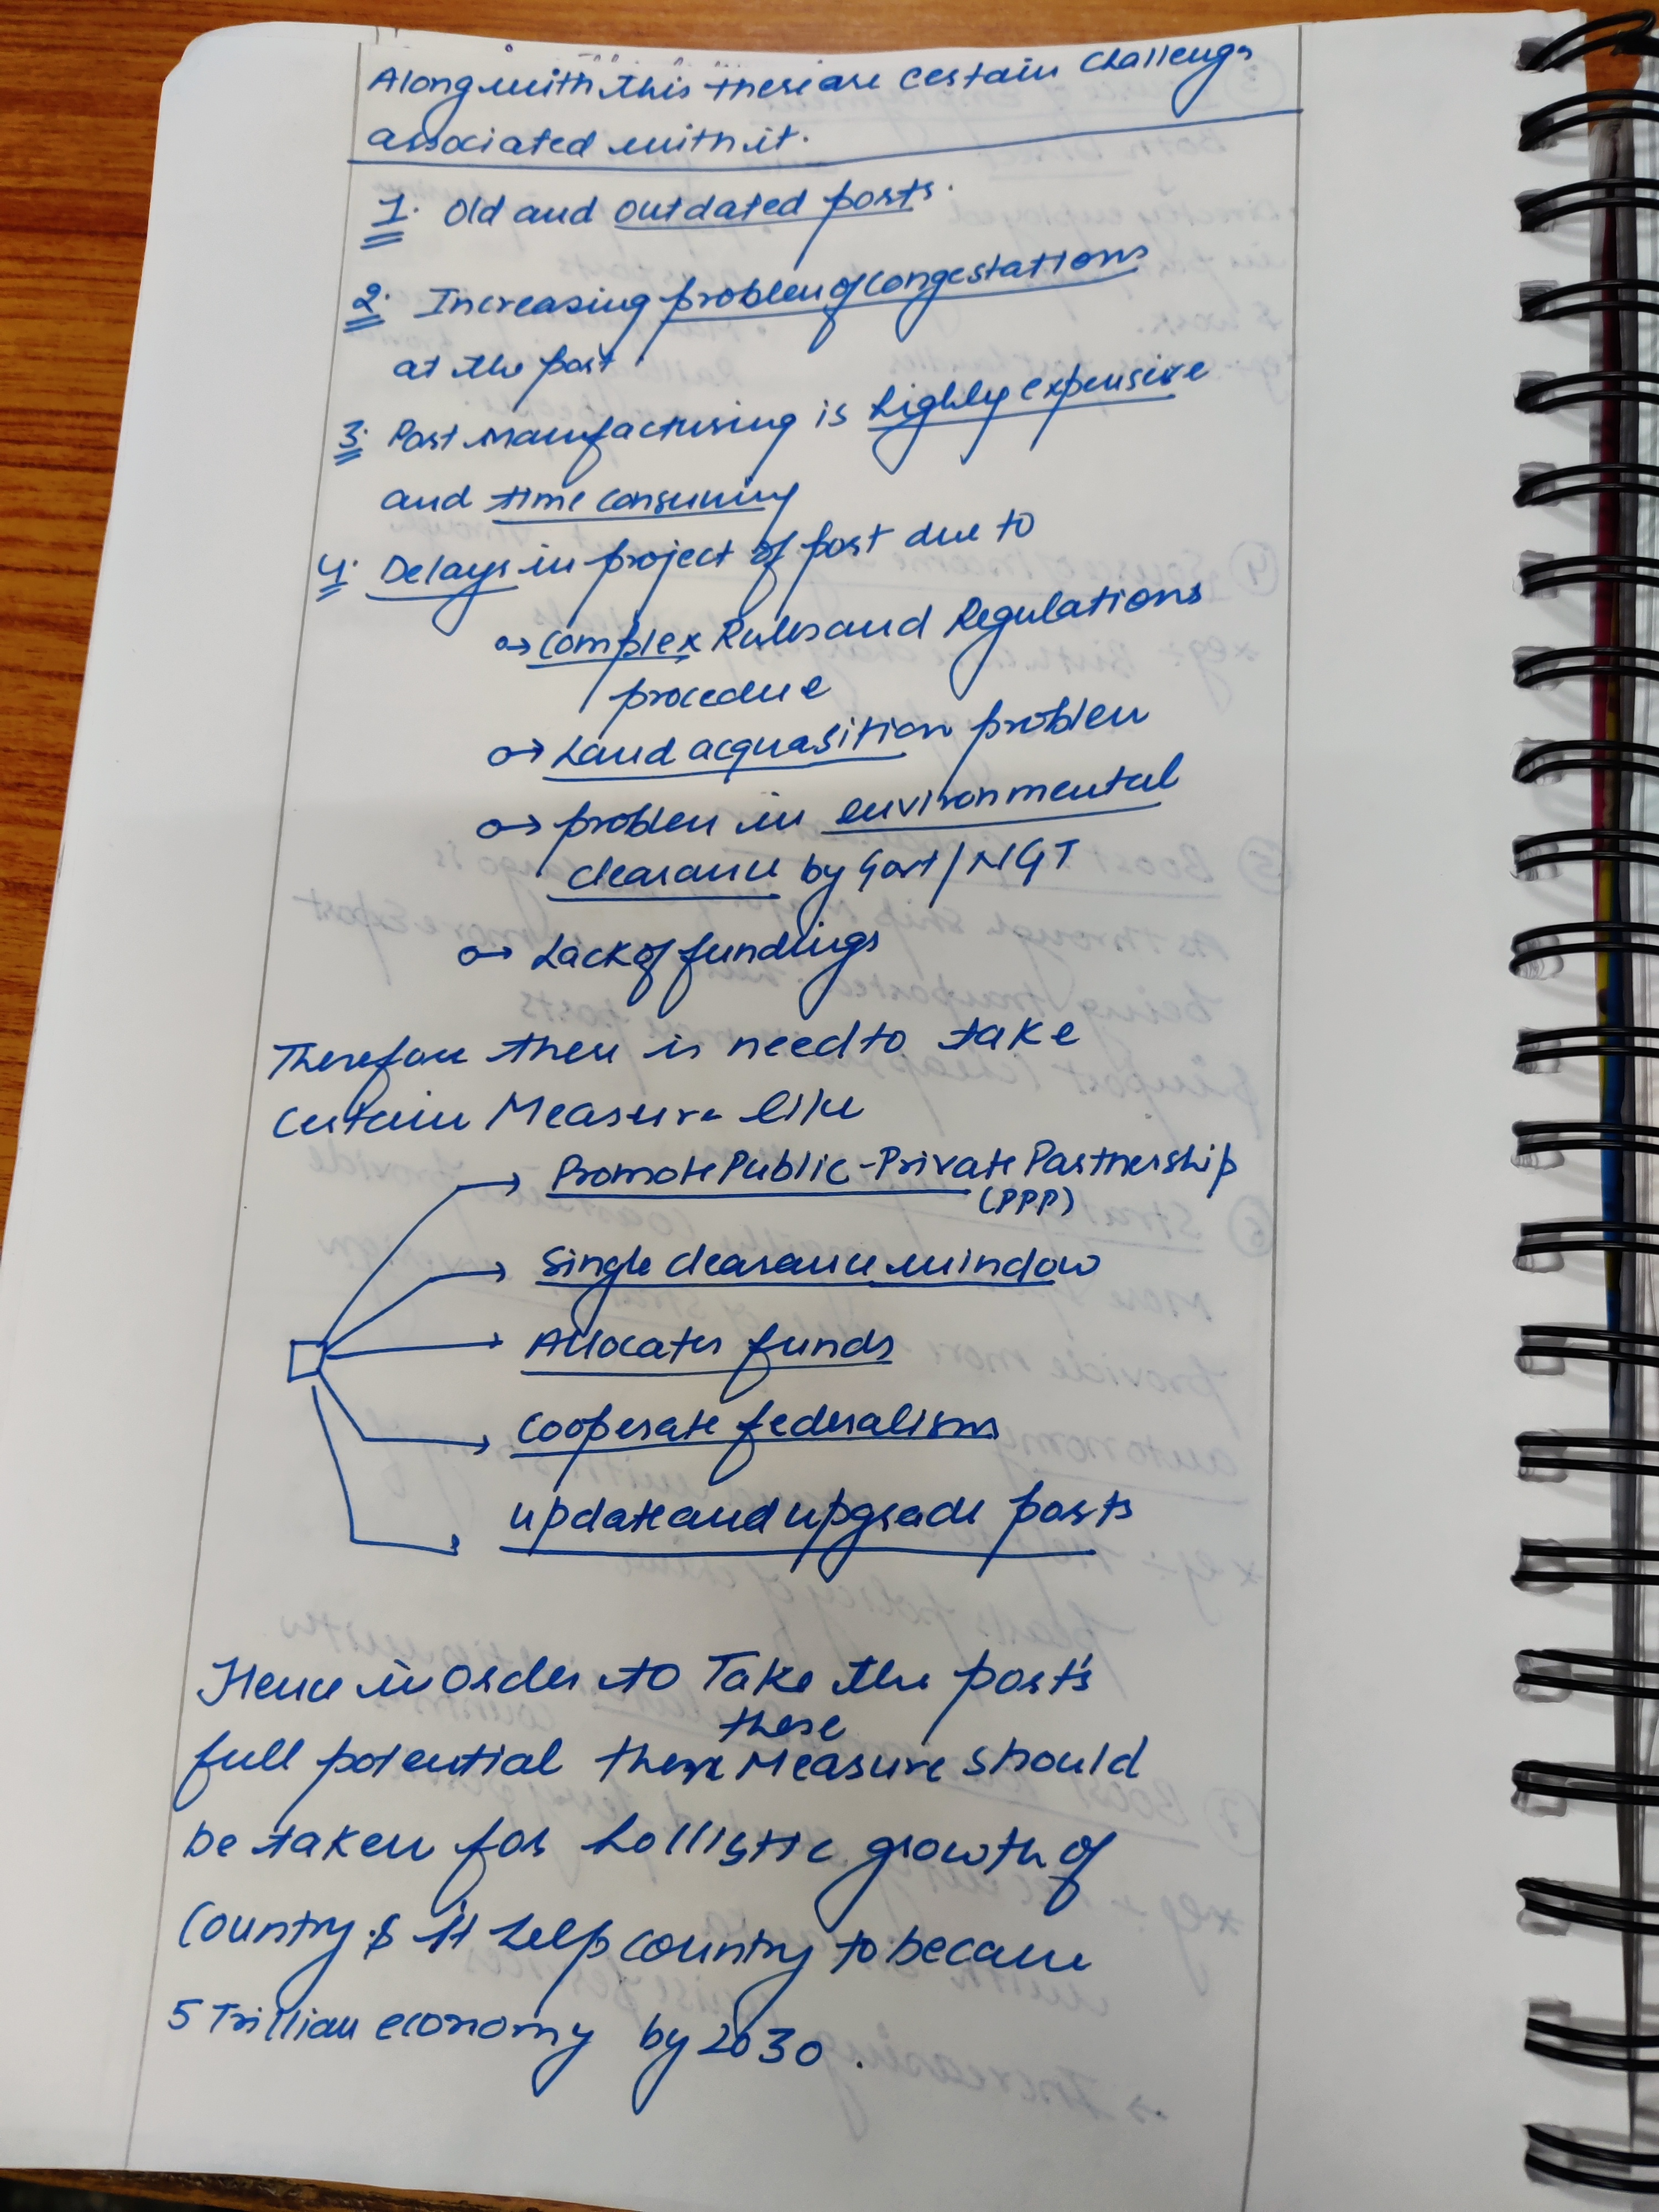 Along with this there are certain challenges
associated with it.
1. Old and outdated ports.
2. Increasing problem of congestations
at the port.
3. Port Manufacturing is highly expensive
and time consuming
4. Delays in project of port due to
→ complex Rules and Regulations
procedue
→ Land acquasition problem
→ problem in environmental
clearance by Govt/NGT
→ Lack of fundings
Therefore there is need to take
certain Measure like
→ Promote Public-Private Partnership
(PPP)
→ Single clearance window
→ Allocates funds
→ Cooperate federalism
→ update and upgrade ports
Hence in order to Take the port's
these
full potential Measure should
be taken for hollistic growth of
Country & it help country to became
5 Trillian economy by 2030.